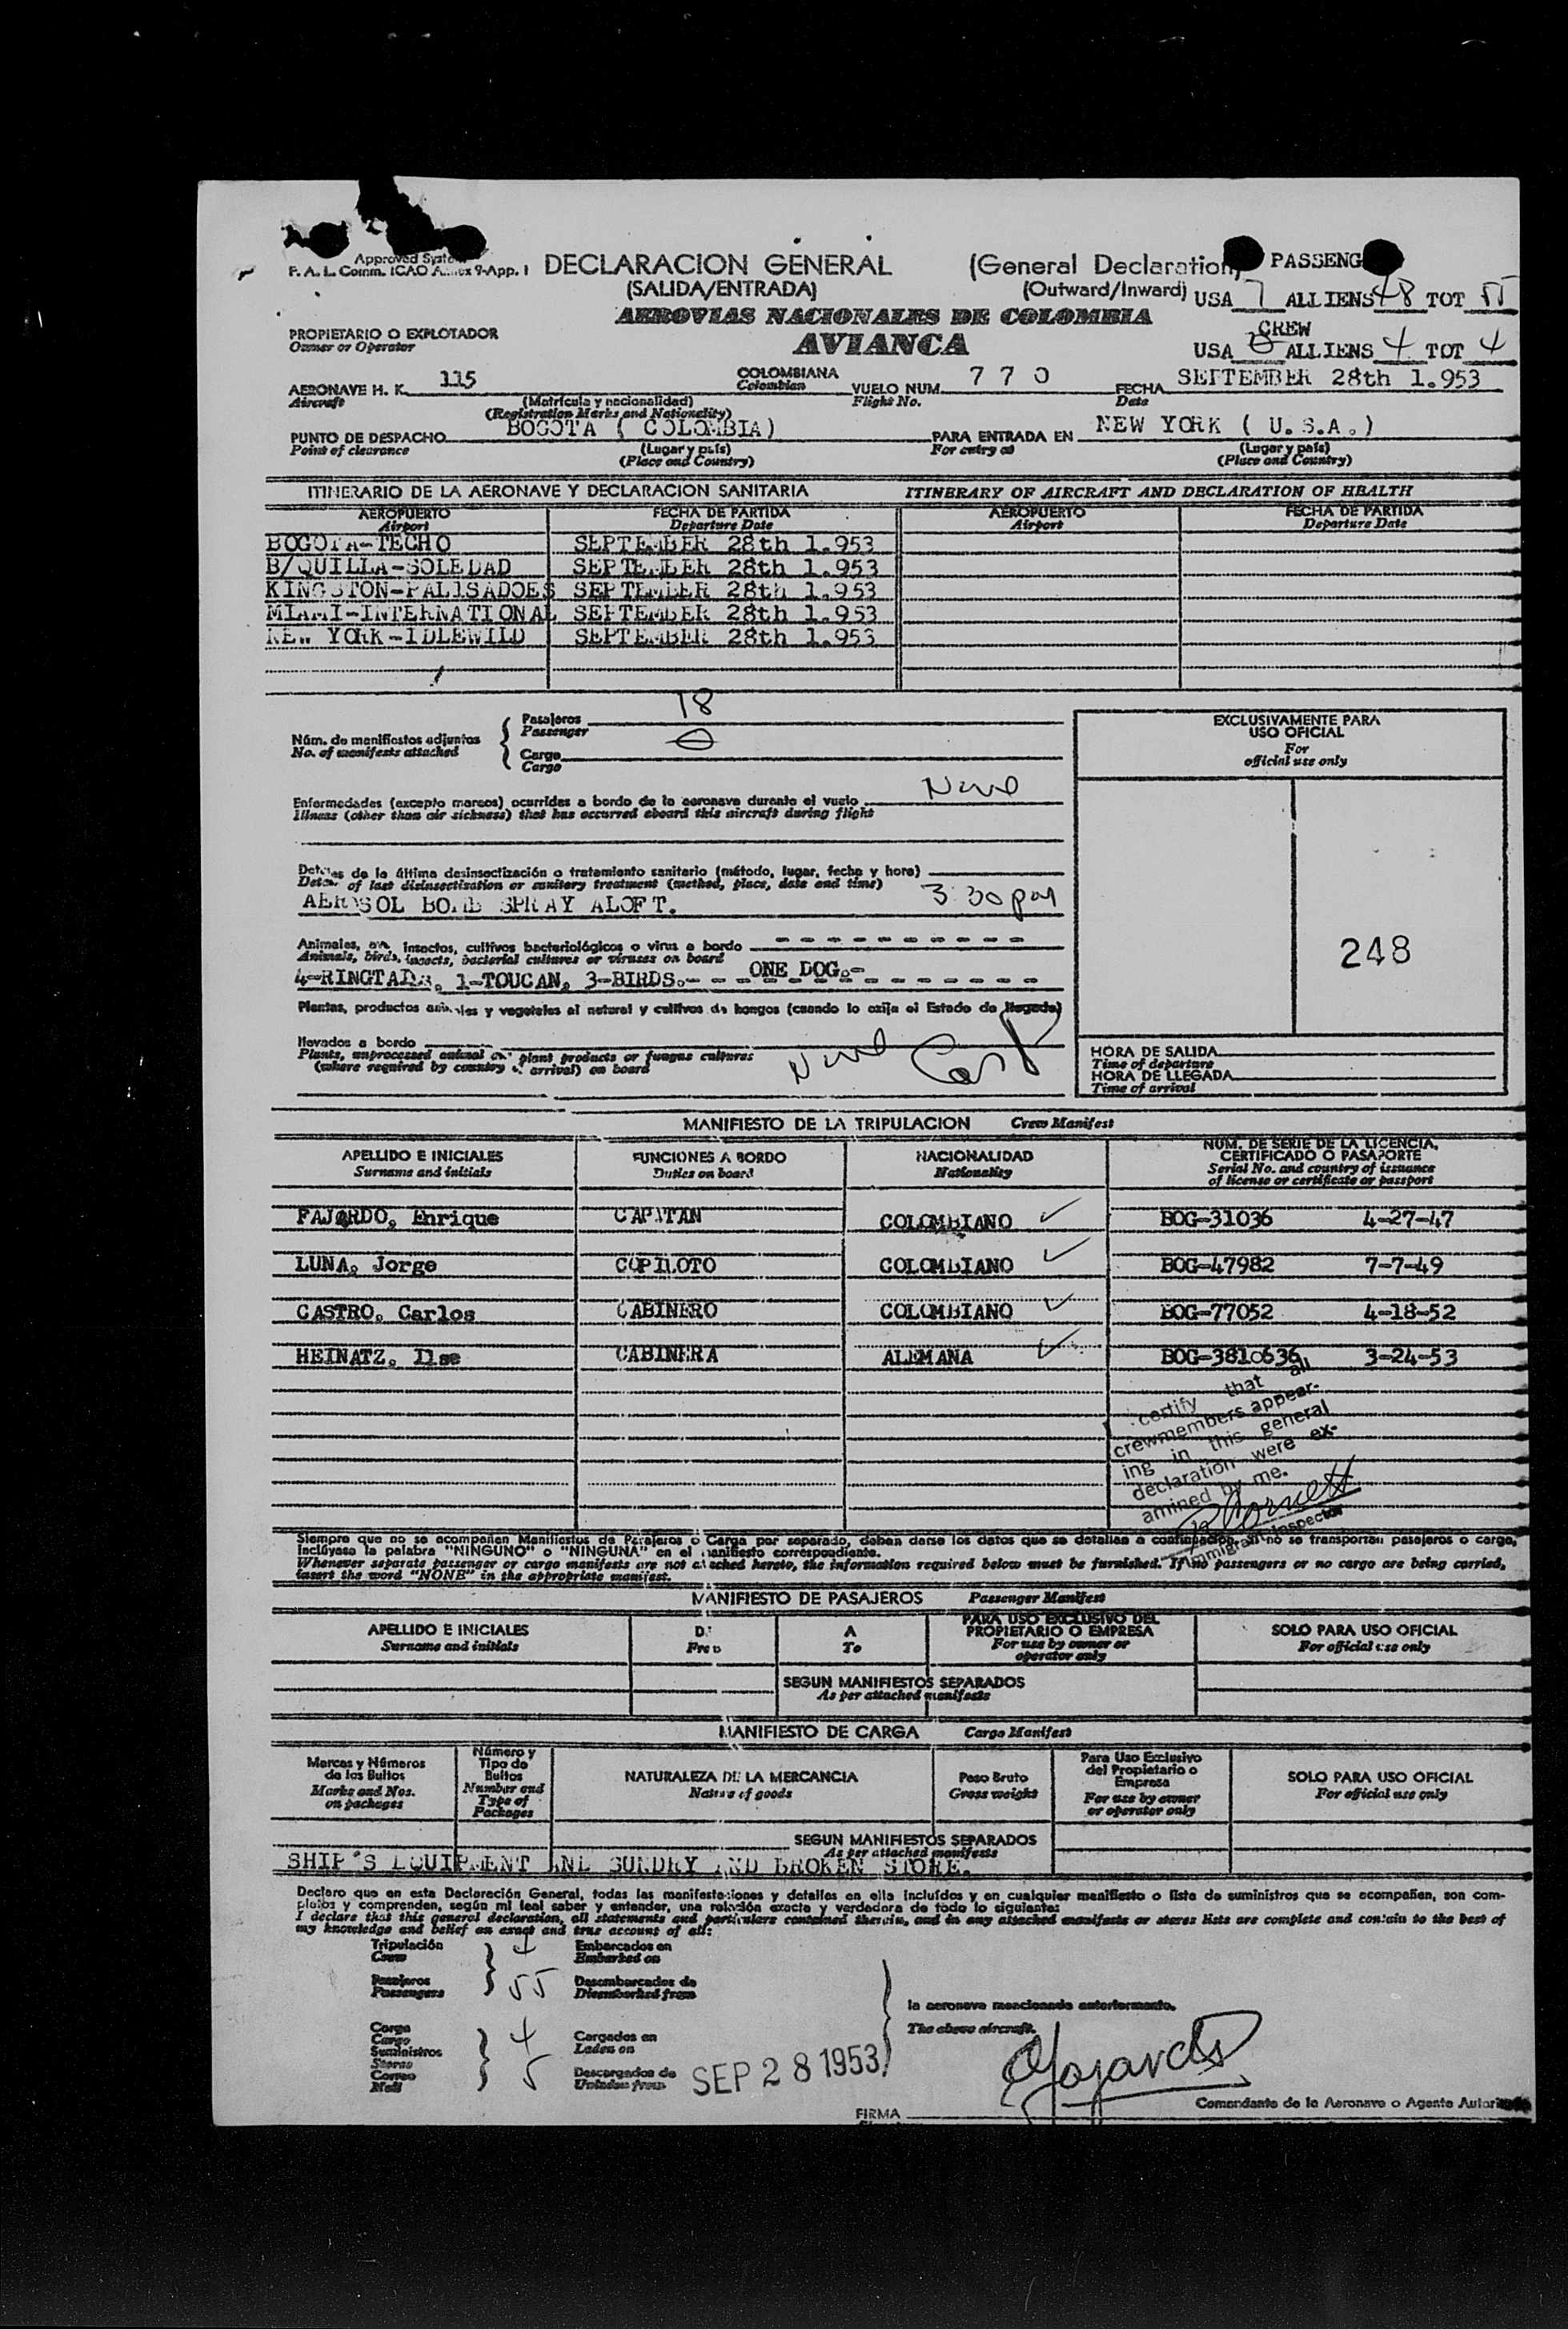 Approved
F. A. L. Comm. ICAO Annex 9-App. I
DECLARACION GENERAL (General Declaration)
PASSENG
(SALIDA/ENTRADA) (Outward/Inward)
USA 7 ALLIENS 48 TOT 55
AEROVIAS NACIONALES DE COLOMBIA
CREW
PROPIETARIO O EXPLOTADOR
Owner or Operator
AVIANCA
USA 0 ALLIENS 4 TOT 4
AERONAVE H. K. 115 COLOMBIANA VUELO NUM. 770 FECHA SEPTEMBER 28th 1.953
Aircraft (Matrícula y nacionalidad) Colombian Flight No. Date
(Registration Marks and Nationality)
PUNTO DE DESPACHO BOGOTA ( COLOMBIA) PARA ENTRADA EN NEW YORK ( U.S.A.)
Point of clearance (Lugar y país) For entry at (Lugar y país)
(Place and Country) (Place and Country)
ITINERARIO DE LA AERONAVE Y DECLARACION SANITARIA ITINERARY OF AIRCRAFT AND DECLARATION OF HEALTH
AEROPUERTO FECHA DE PARTIDA AEROPUERTO FECHA DE PARTIDA
Airport Departure Date Airport Departure Date
BOGOTA-TECHO SEPTEMBER 28th 1.953
B/QUILLA-SOLEDAD SEPTEMBER 28th 1.953
KINGSTON-PALISADOES SEPTEMBER 28th 1.953
MIAMI-INTERNATIONAL SEPTEMBER 28th 1.953
NEW YORK-IDLEWILD SEPTEMBER 28th 1.953
Núm. de manifiestos adjuntos
No. of manifests attached
Pasajeros 18
Passenger
Carga 0
Cargo
EXCLUSIVAMENTE PARA
USO OFICIAL
For
official use only
Enfermedades (excepto mareos) ocurridas a bordo de la aeronave durante el vuelo None
Illness (other than air sickness) that has occurred aboard this aircraft during flight
Detalles de la última desinsectización o tratamiento sanitario (método, lugar, fecha y hora)
Details of last disinsectization or sanitary treatment (method, place, date and time)
AEROSOL BOMB SPRAY ALOFT. 3:30 pm
248
Animales, aves, insectos, cultivos bacteriológicos o virus a bordo
Animals, birds, insects, bacterial cultures or viruses on board
4-RINGTAILS, 1-TOUCAN, 3-BIRDS.- ONE DOG.-
Plantas, productos animales y vegetales al natural y cultivos de hongos (cuando lo exija el Estado de llegada)
llevados a bordo None
Plants, unprocessed animal or plant products or fungus cultures
(where required by country of arrival) on board
HORA DE SALIDA
Time of departure
HORA DE LLEGADA
Time of arrival
MANIFIESTO DE LA TRIPULACION Crew Manifest
APELLIDO E INICIALES FUNCIONES A BORDO NACIONALIDAD NUM. DE SERIE DE LA LICENCIA,
CERTIFICADO O PASAPORTE
Surname and initials Duties on board Nationality Serial No. and country of issuance
of license or certificate or passport
FAJARDO, Enrique CAPITAN COLOMBIANO ✓ BOG-31036 4-27-47
LUNA, Jorge COPILOTO COLOMBIANO ✓ BOG-47982 7-7-49
CASTRO, Carlos CABINERO COLOMBIANO ✓ BOG-77052 4-18-52
HEINATZ, Ilse CABINERA ALEMANA ✓ BOG-3810636 3-24-53
certify that all
crewmembers appear-
ing in this general
declaration were ex-
amined by me.
Immigrant Inspector
Siempre que no se acompañen Manifiestos de Pasajeros o Carga por separado, deben darse los datos que se detallan a continuación. Si no se transportan pasajeros o carga,
inclúyase la palabra "NINGUNO" o "NINGUNA" en el manifiesto correspondiente.
Whenever separate passenger or cargo manifests are not attached hereto, the information required below must be furnished. If no passengers or no cargo are being carried,
insert the word "NONE" in the appropriate manifest.
MANIFIESTO DE PASAJEROS Passenger Manifest
APELLIDO E INICIALES DE A PARA USO EXCLUSIVO DEL
PROPIETARIO O EMPRESA SOLO PARA USO OFICIAL
Surname and initials From To For use by owner or
operator only For official use only
SEGUN MANIFIESTOS SEPARADOS
As per attached manifests
MANIFIESTO DE CARGA Cargo Manifest
Marcas y Números
de los Bultos
Marks and Nos.
on packages
Número y
Tipo de
Bultos
Number and
Type of
Packages
NATURALEZA DE LA MERCANCIA
Nature of goods
Peso Bruto
Gross weight
Para Uso Exclusivo
del Propietario o
Empresa
For use by owner
or operator only
SOLO PARA USO OFICIAL
For official use only
SEGUN MANIFIESTOS SEPARADOS
As per attached manifests
SHIP'S EQUIPMENT AND SUNDRY AND BROKEN STORE.
Declaro que en esta Declaración General, todas las manifestaciones y detalles en ella incluídos y en cualquier manifiesto o lista de suministros que se acompañan, son com-
pletos y comprenden, según mi leal saber y entender, una relación exacta y verdadera de todo lo siguiente:
I declare that this general declaration, all statements and particulars contained therein, and in any attached manifests or stores lists are complete and contain to the best of
my knowledge and belief an exact and true account of all:
Tripulación 4 Embarcados en
Crew Embarked on
Pasajeros 55 Desembarcados de
Passengers Disembarked from
la aeronave mencionada anteriormente.
The above aircraft.
Carga 4 Cargados en
Cargo Laden on
Suministros
Stores
Correo 5 Descargados de
Mail Unladen from
SEP 28 1953
FIRMA
Comandante de la Aeronave o Agente